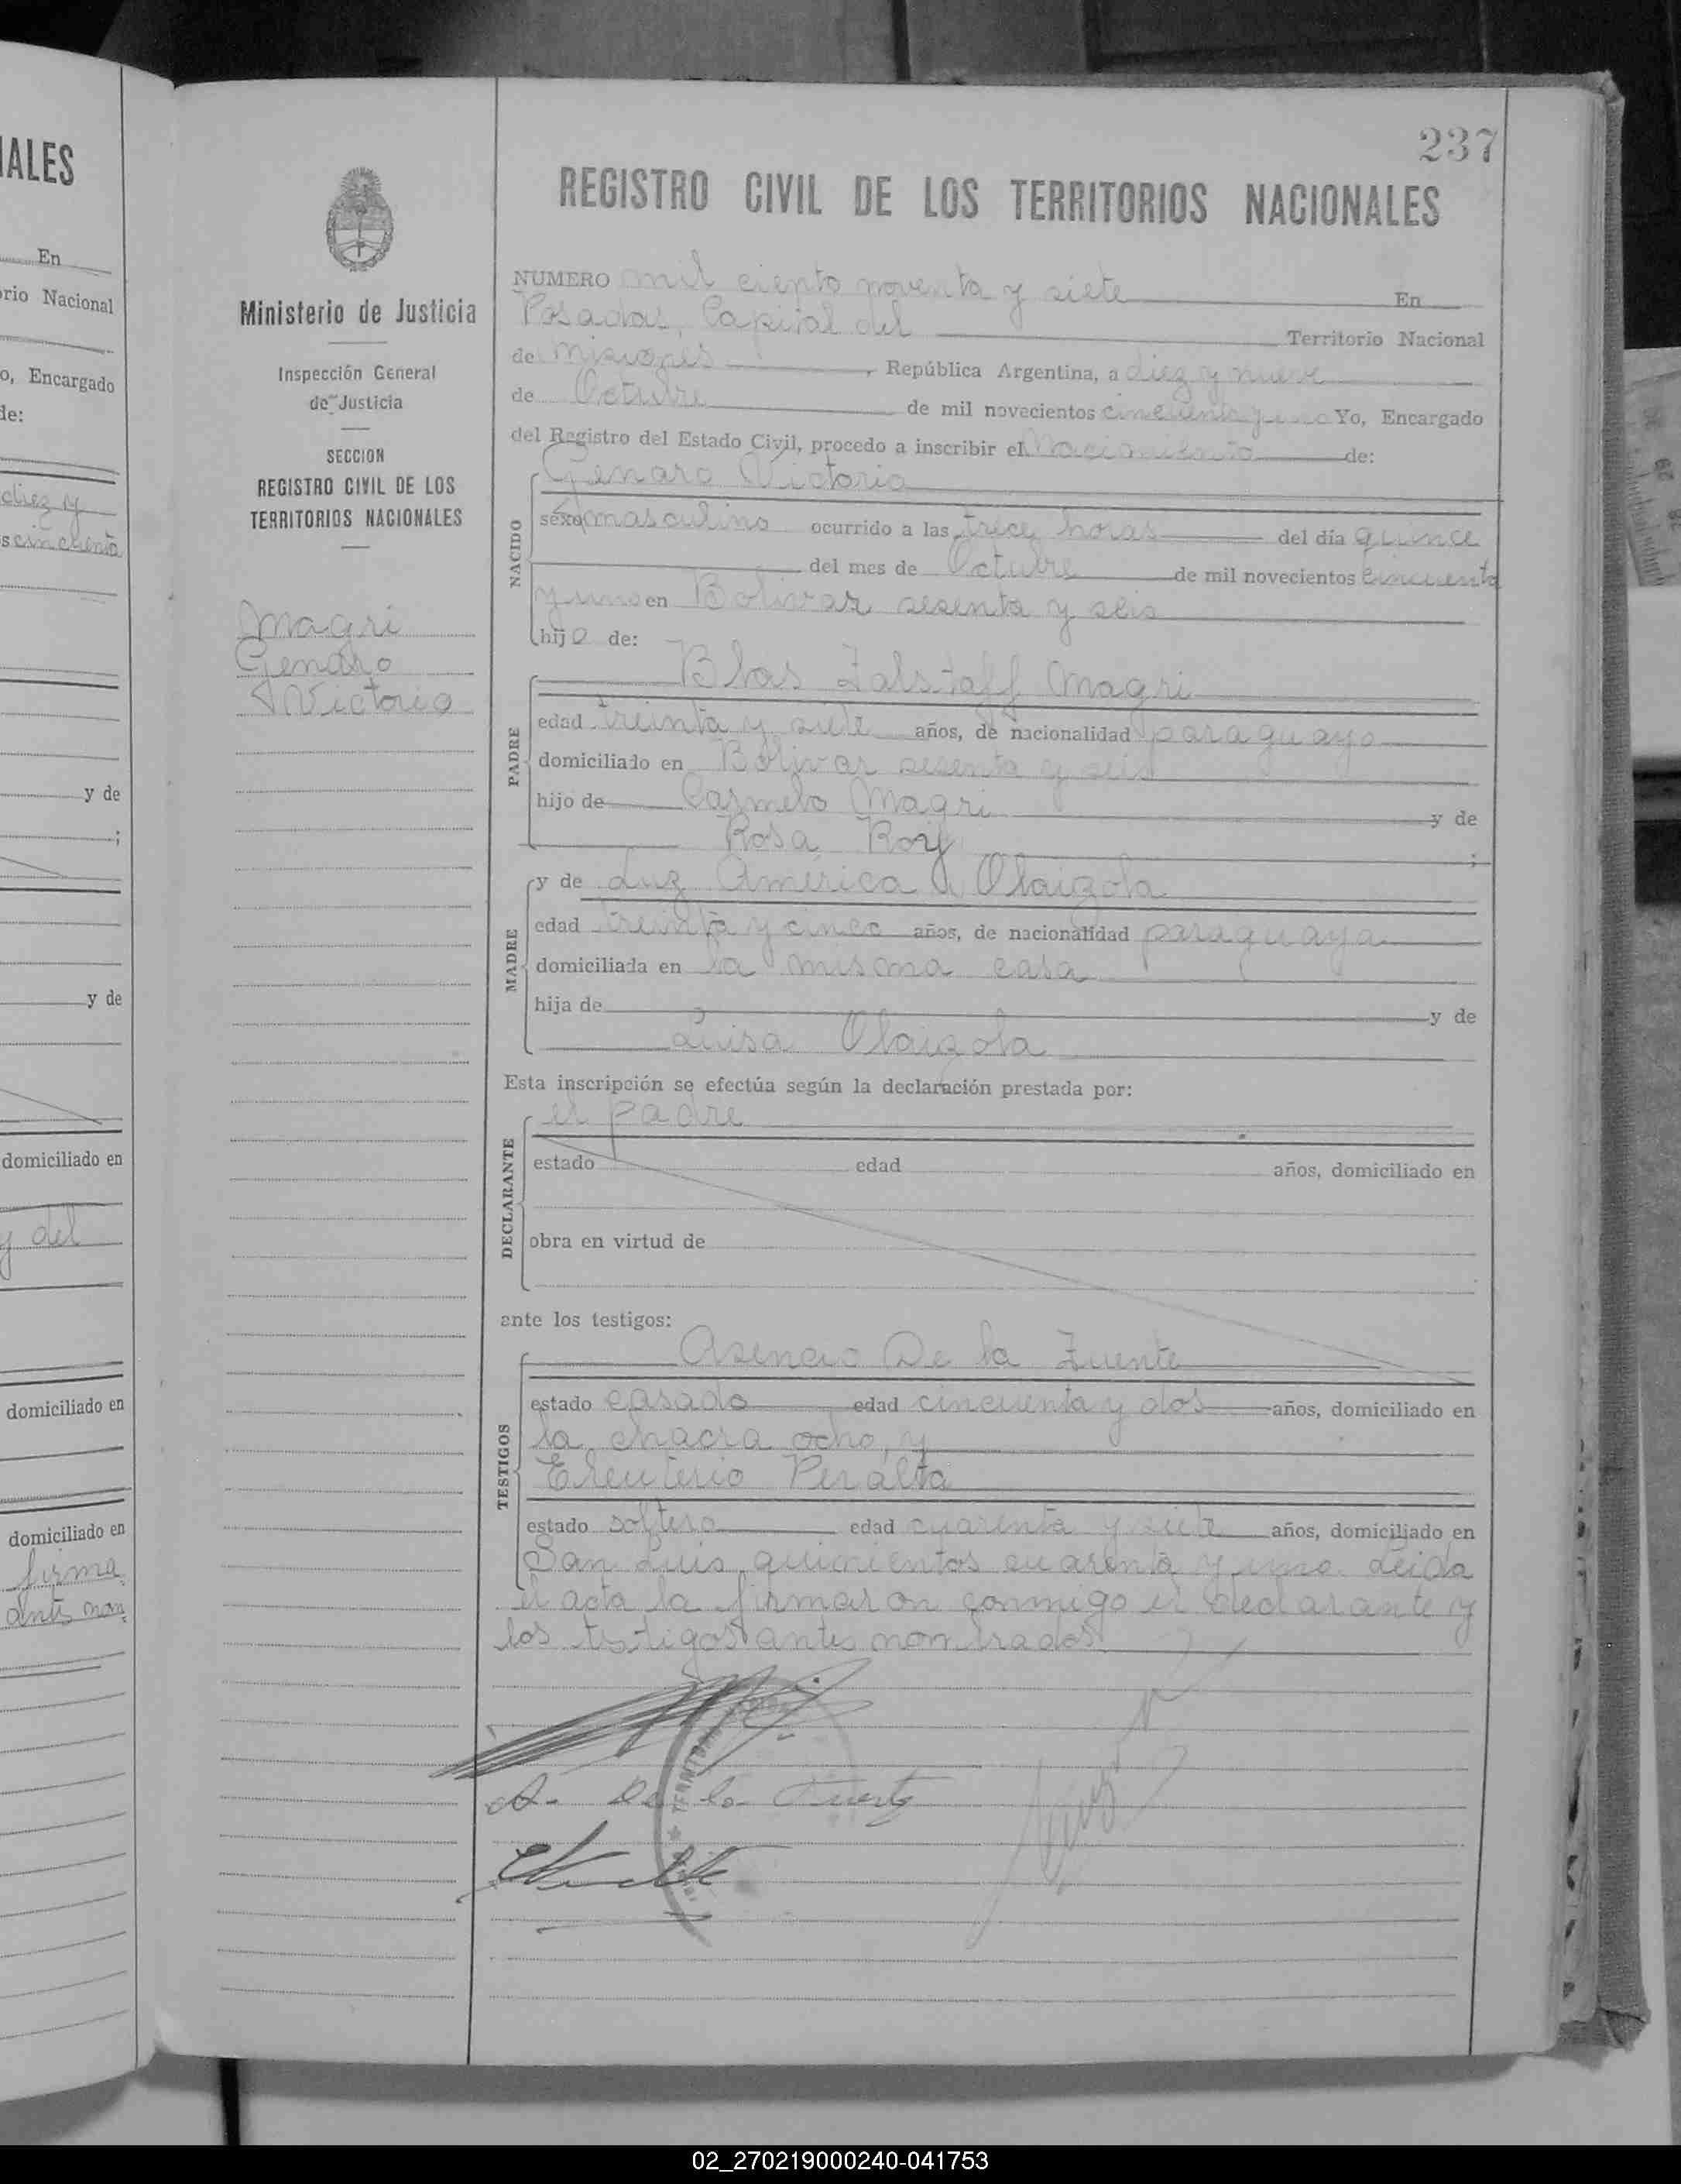 IALES
En
rio Nacional
o, Encargado
de:
diez y
s cincuenta
y de
;
y de
domiciliado en
y del
domiciliado en
domiciliado en
firma
antes nom
237
Ministerio de Justicia
Inspección General
de Justicia
SECCION
REGISTRO CIVIL DE LOS
TERRITORIOS NACIONALES
Magri
Genaro
Victorio
REGISTRO CIVIL DE LOS TERRITORIOS NACIONALES
NUMERO mil ciento noventa y siete En
Posadas, Capital del Territorio Nacional
de Misiones, República Argentina, a diez y nueve
de Octubre de mil novecientos cincuenta y uno Yo, Encargado
del Registro del Estado Civil, procedo a inscribir el Nacimiento de:
Genaro Victorio
NACIDO
sexo masculino ocurrido a las trece horas del día quince
del mes de Octubre de mil novecientos cincuenta
y uno en Bolivar sesenta y seis
hijo de:
Blas Falstaff Magri
PADRE
edad treinta y siete años, de nacionalidad paraguayo
domiciliado en Bolivar sesenta y seis
hijo de Carmelo Magri y de
Rosa Roij ;
y de Luz América Olaizola
MADRE
edad treinta y cinco años, de nacionalidad paraguaya
domiciliada en la misma casa
hija de y de
Luisa Olaizola
Esta inscripción se efectúa según la declaración prestada por:
el padre
DECLARANTE
estado edad años, domiciliado en
obra en virtud de
ante los testigos:
Asencio De la Fuente
TESTIGOS
estado casado edad cincuenta y dos años, domiciliado en
la chacra ocho, y
Eleuterio Peralta
estado soltero edad cuarenta y siete años, domiciliado en
San Luis quinientos cuarenta y uno. Leida
el acta la firmaron conmigo el declarante y
los testigos antes nombrados
A. De la Fuente
02_270219000240-041753